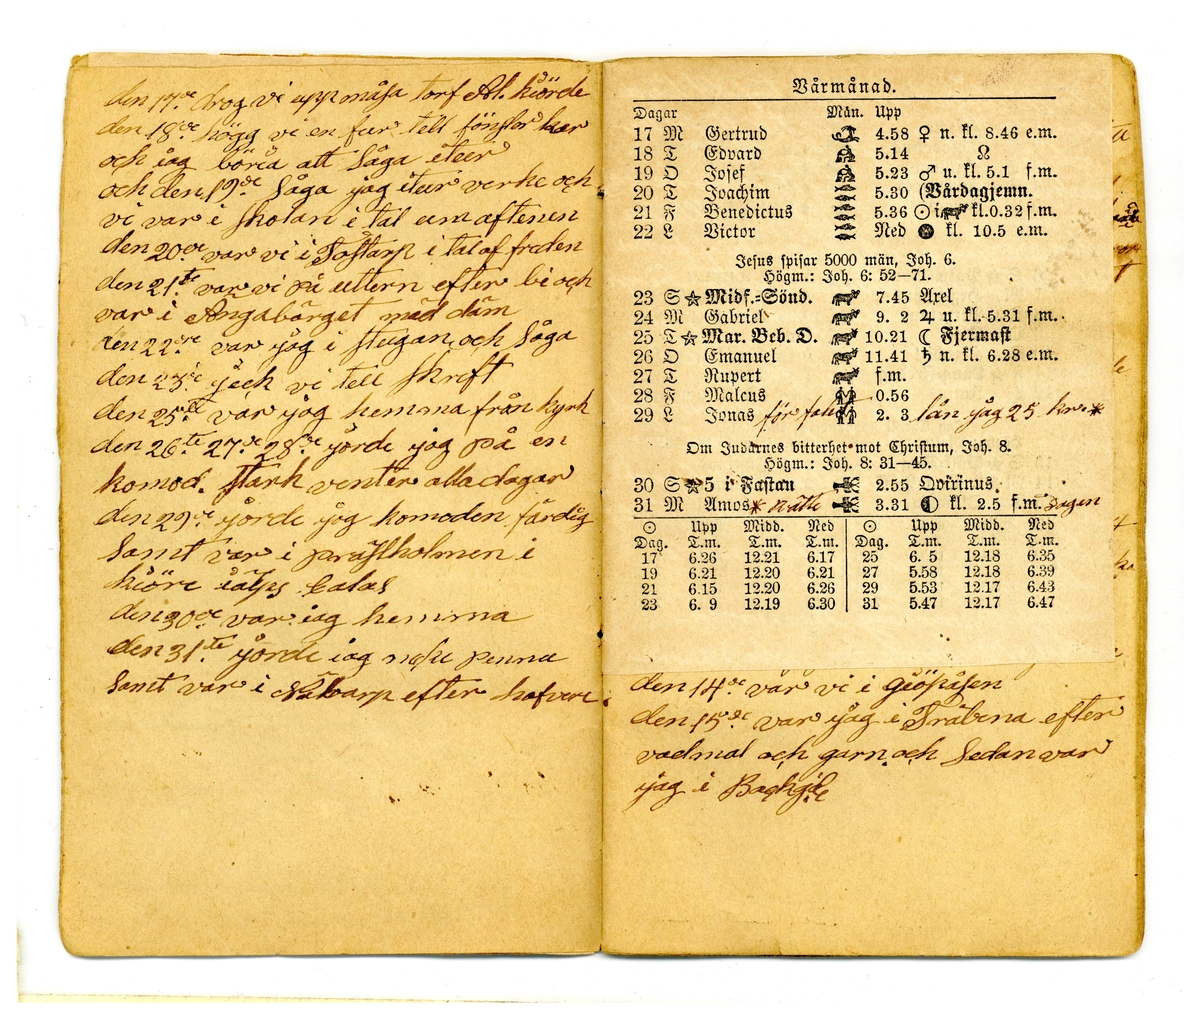 den 17de drog vi upp måsa torf Al. kiörde
den 18de högg vi en fur till fönster
och iag böria att Såga
och den 19de Såga jag verke och
vi var i skolan i tal um aftenen
den 20de var vi i Toftarp i tal af freden
den 21te var vi på uttern efter bi och
var i Ängabärget med däm
den 22re var jag i stugan och Såga
den 23de jeck vi till skrift
den 25te var jag hemma från kyrk
den 26te 27de 28de jorde jag på en
komod. stark venter alla dagar
den 29de jorde jag komoden färdig
Samt var i präsholmen i
kiöre
den 30de var iag hemma
den 31te jorde iag penna
Samt var i efter
Vårmånad.
Dagar Mån. Upp
17 M Gertrud 4.58 ♀ n. kl. 8.46 e.m.
18 T Edvard 5.14 ☊
19 O Josef 5.23 ♂ u. kl. 5.1 f.m.
20 T Joachim 5.30 (Vårdagjemn.
21 F Benedictus 5.36 ☉ i kl. 0.32 f.m.
22 L Victor Ned kl. 10.5 e.m.
Jesus spisar 5000 män, Joh. 6.
Högm.: Joh. 6: 52—71.
23 S ☆ Midf.=Sönd. 7.45 Axel
24 M Gabriel 9. 2 ♃ u. kl. 5.31 f.m.
25 T ☆ Mar. Beb. D. 10.21 ☾ Fjermast
26 O Emanuel 11.41 ♄ n. kl. 6.28 e.m.
27 T Rupert f.m.
28 F Malcus 0.56
29 L Jonas för 2. 3 lån jåg 25 kr. *
Om Judarnes bitterhet mot Christum, Joh. 8.
Högm.: Joh. 8: 31—45.
30 S ☆ 5 i Fastan 2.55 Qvirinus
31 M Amos * nätte 3.31 kl. 2.5 f.m. dagen
☉ Upp Midd. Ned ☉ Upp Midd. Ned
Dag. T.m. T.m. T.m. Dag. T.m. T.m. T.m.
17 6.26 12.21 6.17 25 6. 5 12.18 6.35
19 6.21 12.20 6.21 27 5.58 12.18 6.39
21 6.15 12.20 6.26 29 5.53 12.17 6.43
23 6. 9 12.19 6.30 31 5.47 12.17 6.47
den 14de var vi i giöpåsen
den 15de var jag i Tråbena efter
vadmal och garn och Sedan var
jag i